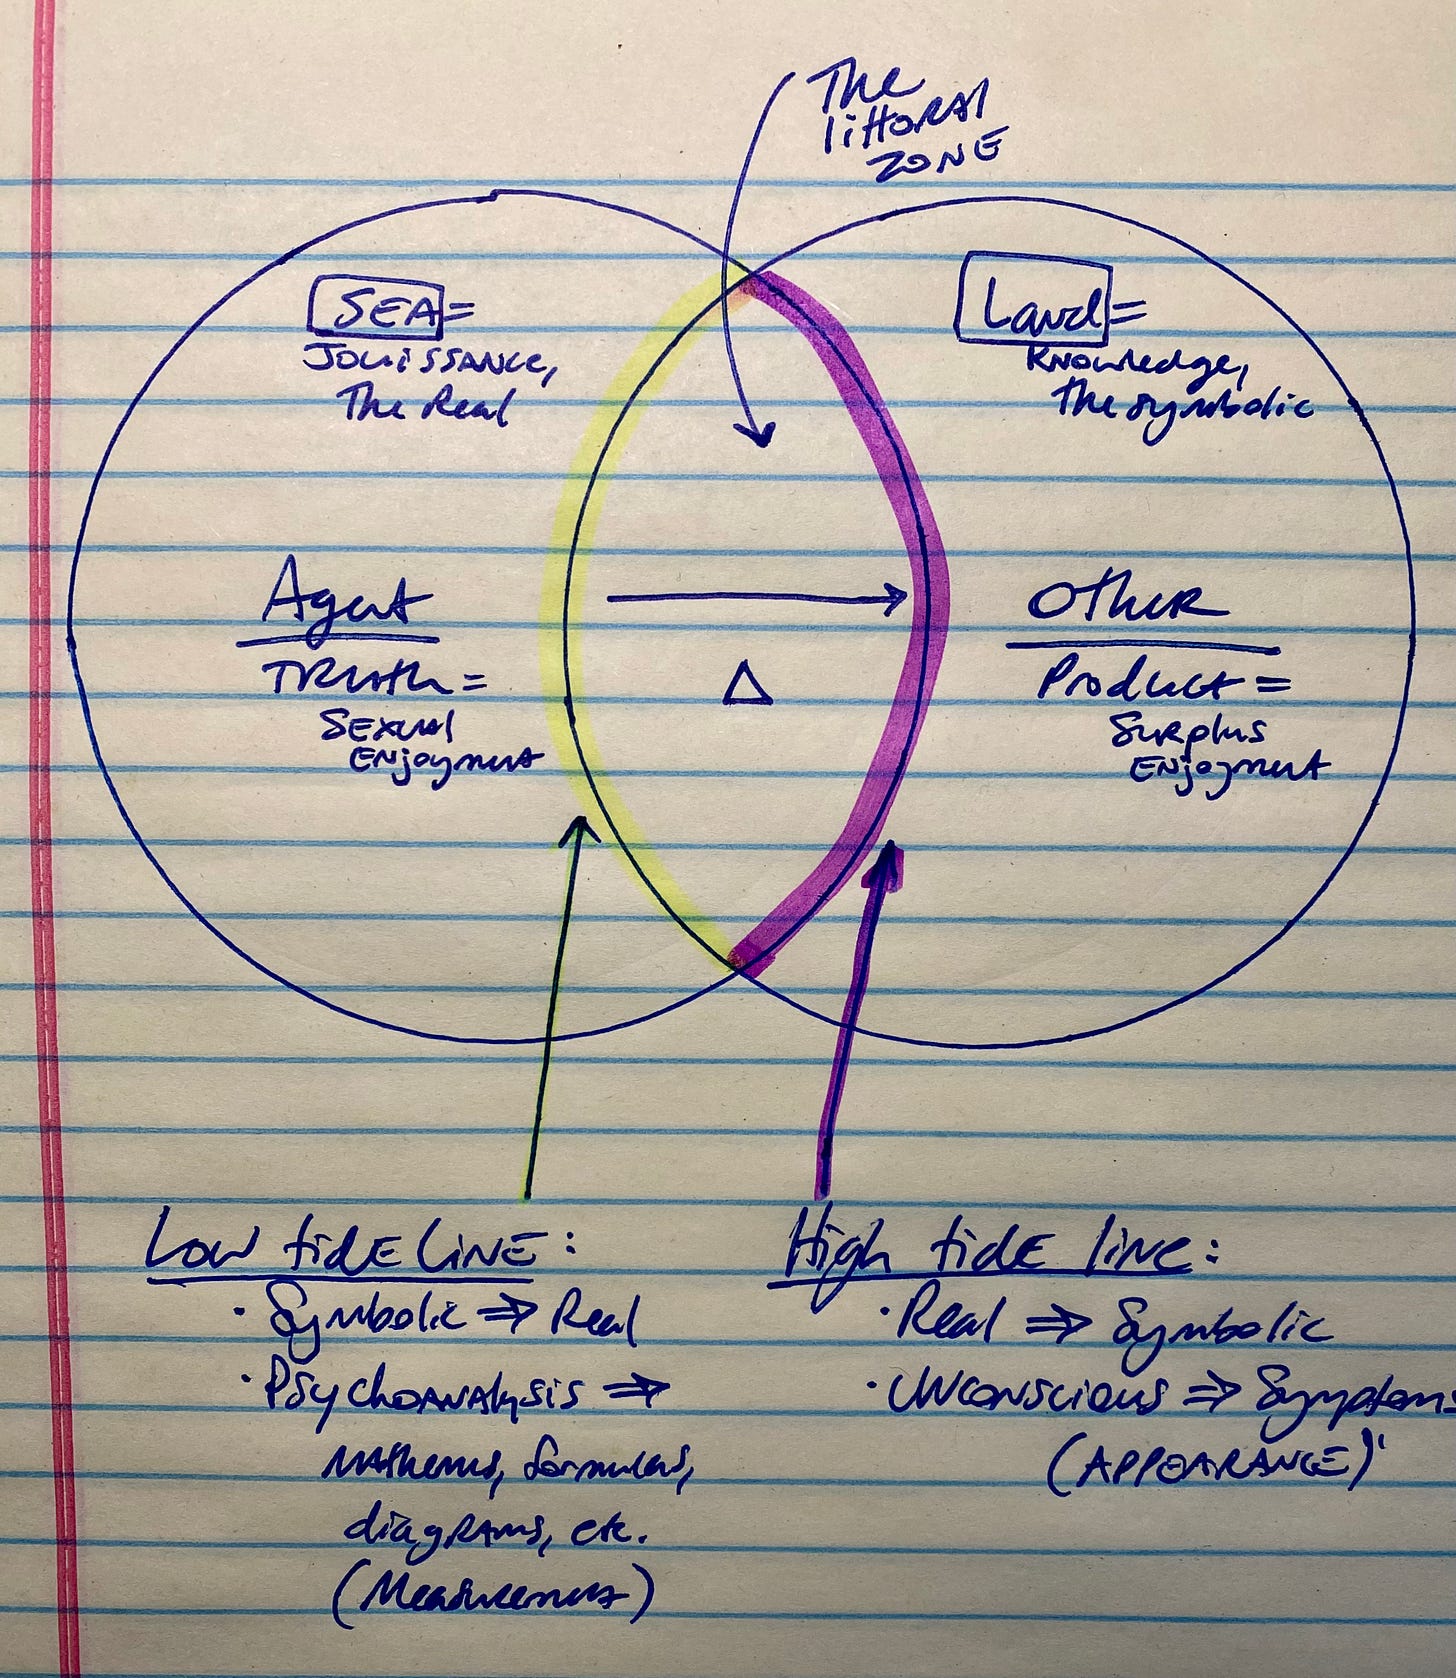 The
littoral
ZONE
SEA =
Jouissance,
The Real
Land =
Knowledge,
The symbolic
Agent
Truth =
Sexual
Enjoyment
Other
Product =
Surplus
Enjoyment
Δ
Low tide line:
· Symbolic ⇒ Real
· Psychoanalysis ⇒
mathems, formulas,
diagrams, etc.
(Measurement)
High tide line:
· Real ⇒ Symbolic
· Unconscious ⇒ Symptoms
(APPEARANCE)